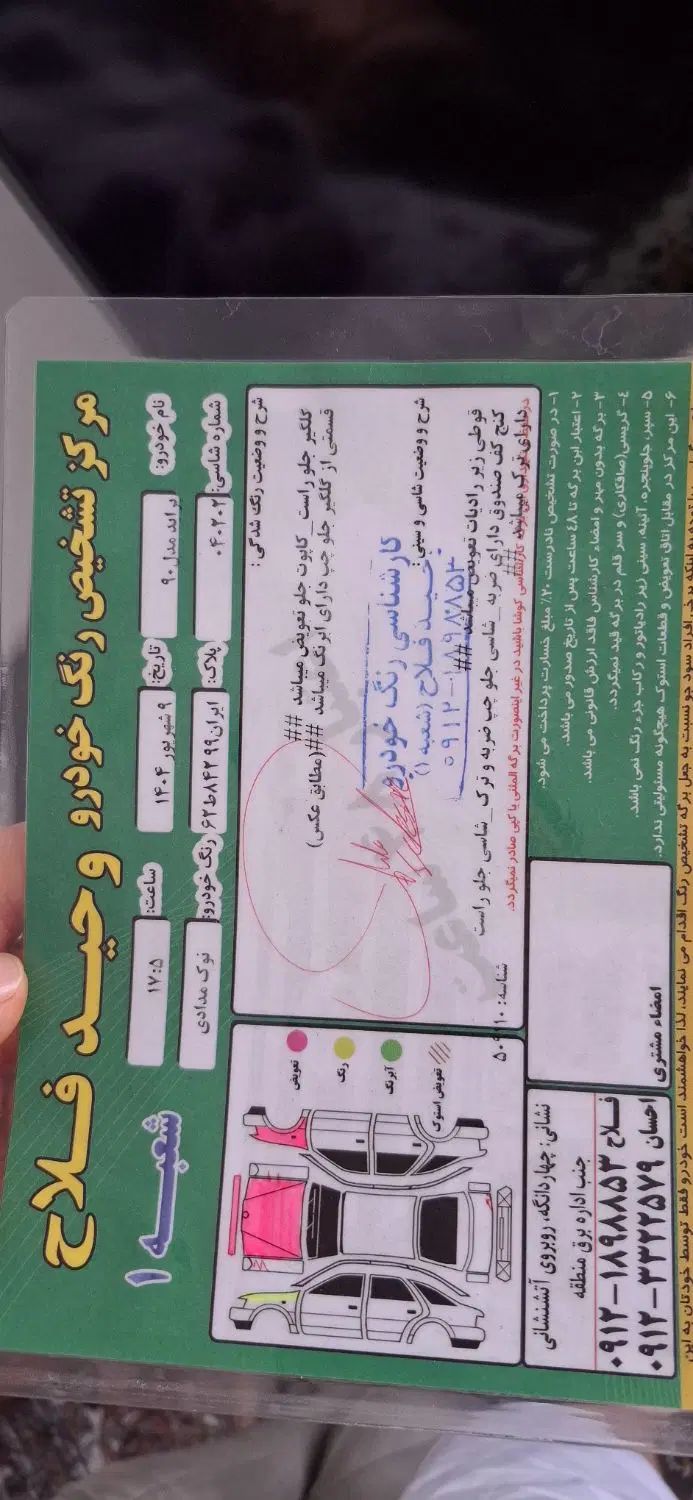 مرکز تشخیص رنگ خودرو وحید فلاح
شعبه ۱
نام خودرو: پراید مدل ۹۰
تاریخ: ۹ شهریور ۱۴۰۴
ساعت: ۱۷:۵
شماره شاسی: ۰۴۰۲۰۲
پلاک: ایران ۹۹ ۸۴۲ط۶۲
رنگ خودرو: نوک مدادی
شرح و وضعیت رنگ شدگی:
گلگیر جلو راست _ کاپوت جلو تعویض میباشد ##
قسمتی از گلگیر جلو چپ دارای ابرنگ میباشد ##(مطابق عکس)
شرح و وضعیت شاسی و سینی:
قوطی زیر رادیات تعویض میباشد ##
کنج کف صندوق دارای ضربه _شاسی جلو چپ ضربه و ترک _شاسی جلو راست
دارای ترک میباشد ##
کارشناسی رنگ خودرو
وحید فلاح (شعبه ۱)
۰۹۱۲-۱۸۹۸۸۵۳
کارشناسی کوشا باشید در غیر اینصورت برگه المثنی یا کپی صادر نمیگردد.
شناسه: ۵۰۹۱۱۰
تعویض
رنگ
آبرنگ
تعویض استوک
۱- در صورت تشخیص نادرست ۲۰٪ مبلغ خسارت پرداخت می شود.
۲- اعتبار این برگه تا ۴۸ ساعت پس از تاریخ صدور می باشد.
۳- برگه بدون مهر و امضاء کارشناس فاقد ارزش قانونی می باشد.
۴- گریسی(صافکاری) و سر قلم در برگه قید نمیگردد.
۵- سپر، جلوپنجره، آئینه، سینی زیر رادیاتور و رکاب جزء رنگ نمی باشد.
۶- این مرکز در مقابل اتاق تعویض و قطعات استوک هیچگونه مسئولیتی ندارد.
امضاء مشتری
نشانی: چهاردانگه، روبروی آتشنشانی
جنب اداره برق منطقه
۰۹۱۲-۱۸۹۸۸۵۳ فلاح
۰۹۱۲-۳۳۲۲۵۷۹ احسان
افراد سود جو نسبت به جعل برگه تشخیص رنگ اقدام می نمایند، لذا خواهشمند است خودرو فقط توسط خودتان به این